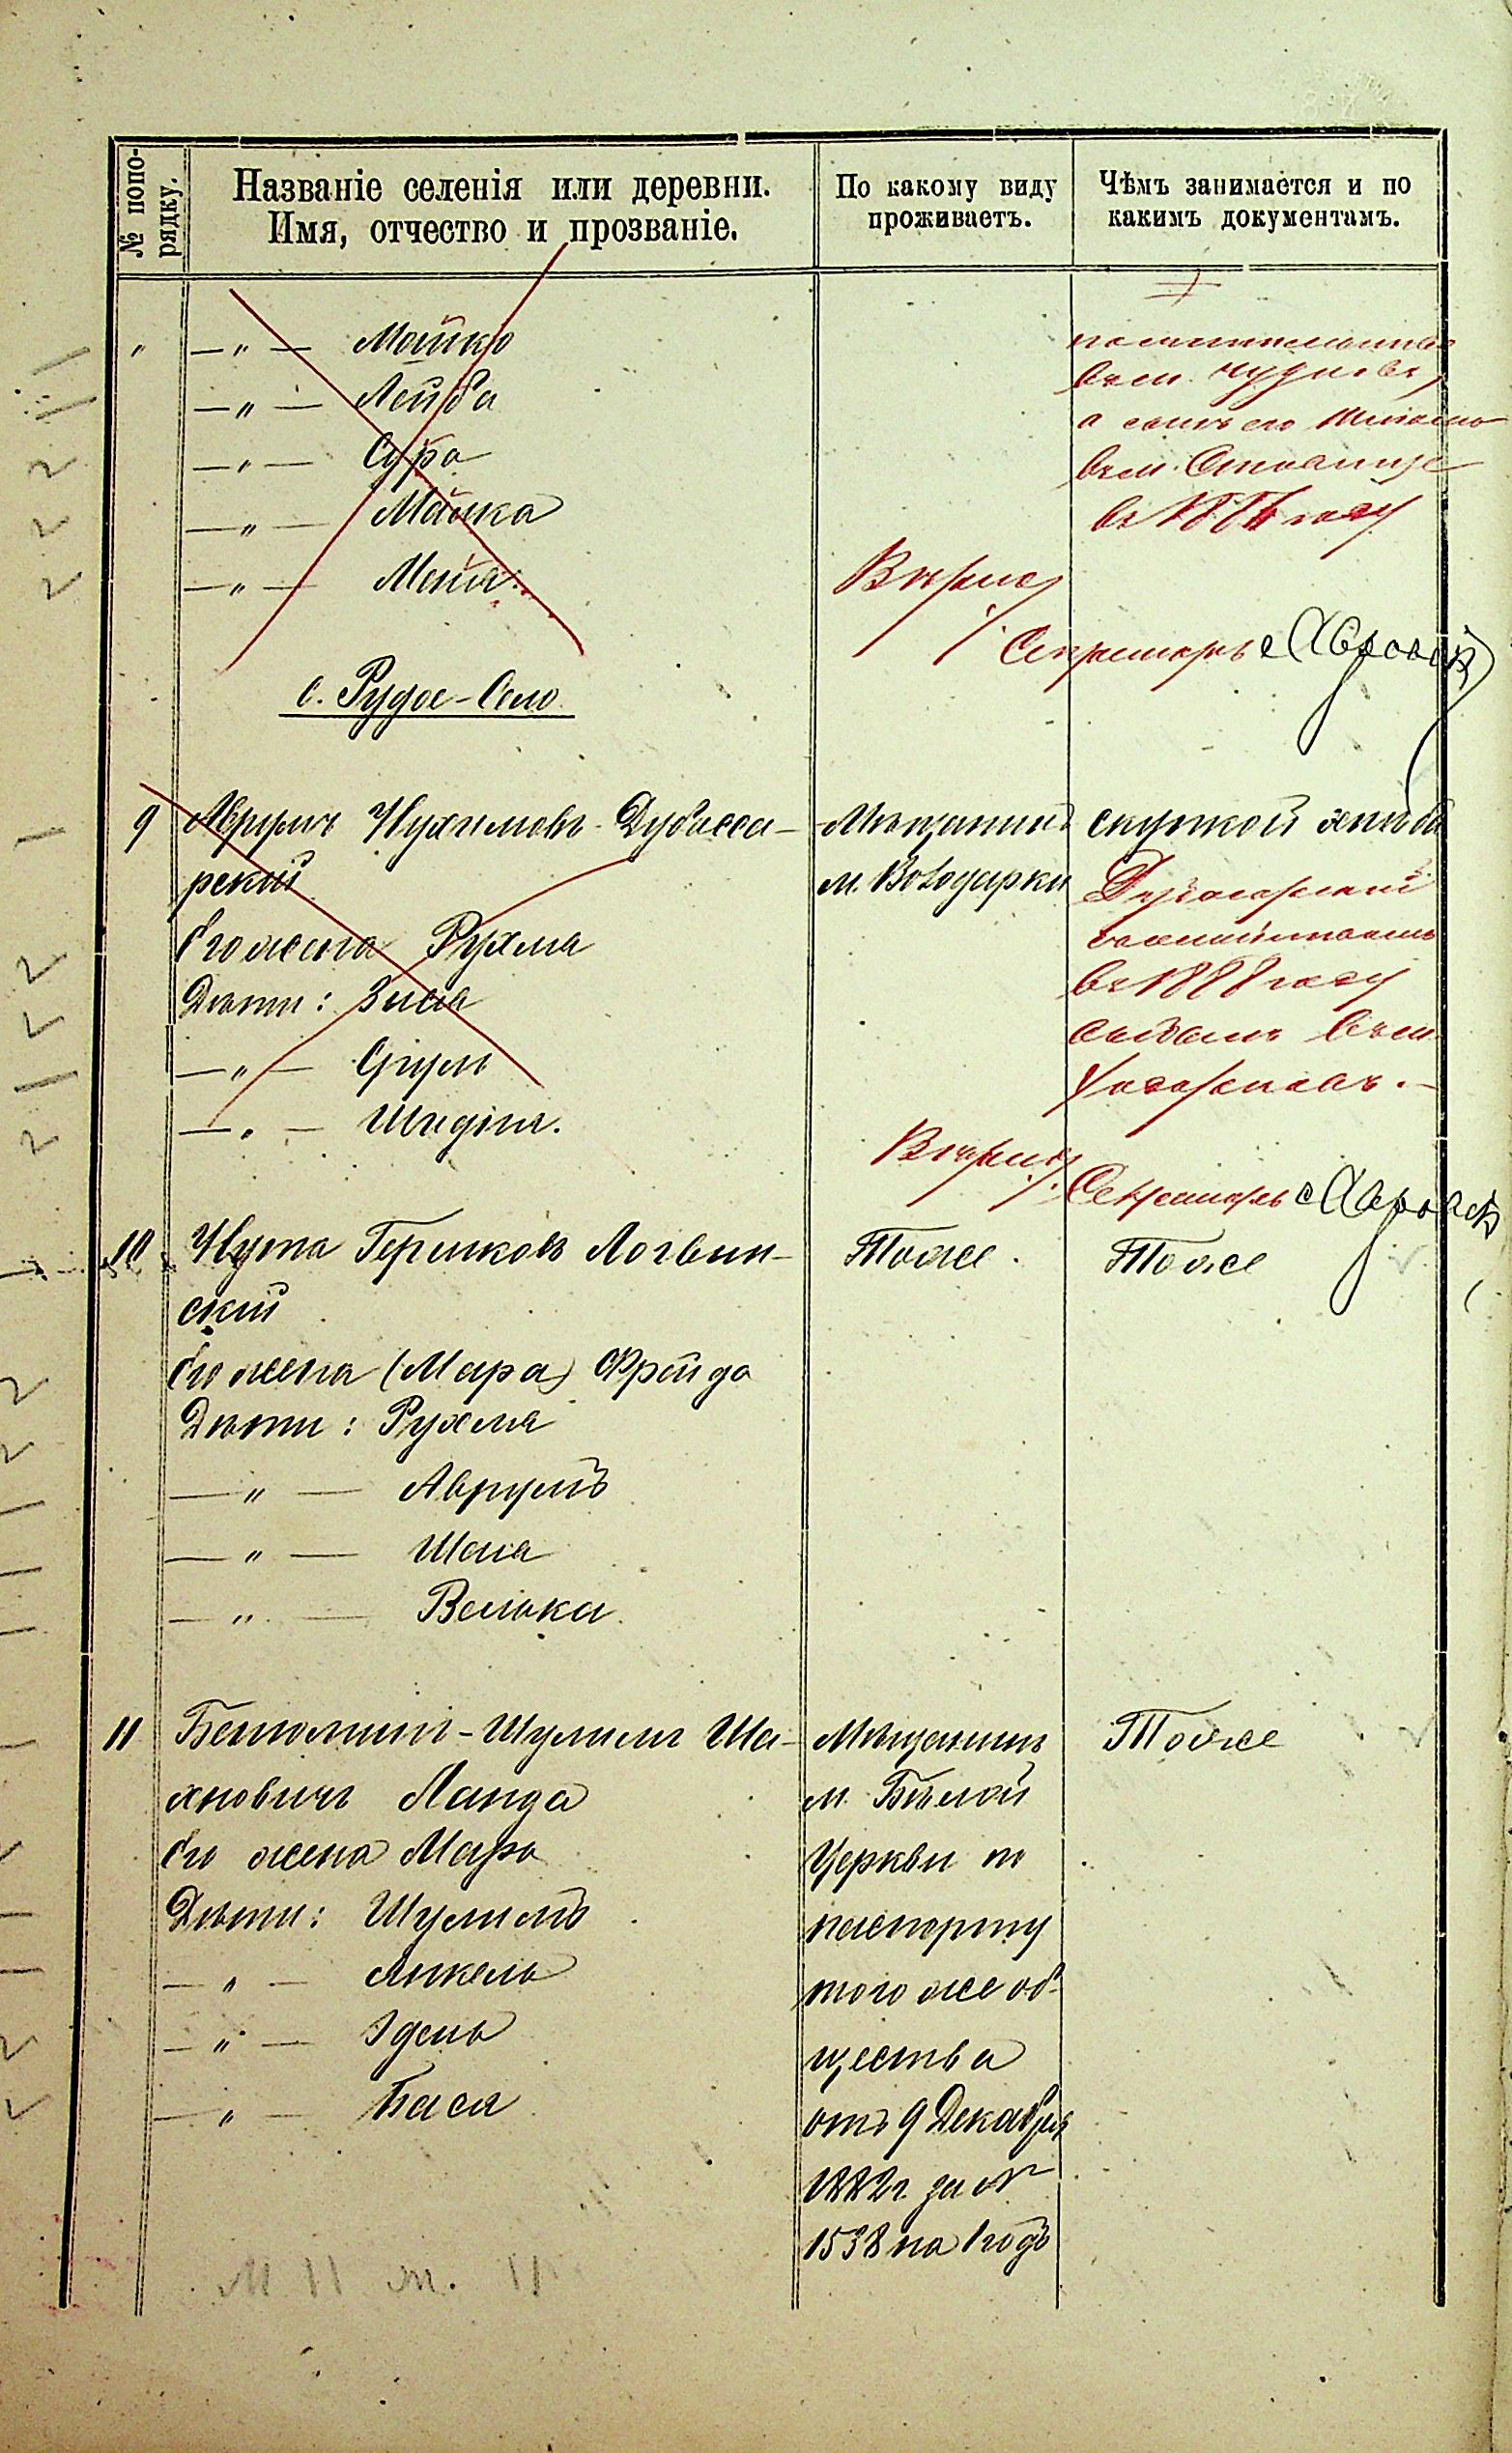 № попо-
рядку.
Названіе селенія или деревни.
Имя, отчество и прозваніе.
По какому виду
проживаетъ.
Чѣмъ занимается и по
какимъ документамъ.
" —"— Мошко
—"— Лейба
—"— Сура
—"— Маика
—"— Меня
в м. Чудновѣ,
а сынъ его
в м. Ставище
въ 1886 году
Вѣрно:
Секретарь
с. Рудое-Село.
9 Аврумъ Нухимовъ Дубасса-
рский
Его жена Рухля
Дѣти: Зися
—"— Сруль
—"— Шндля.
Мѣщанинъ
м. Володарки
скупкой хлѣба
Дубасарский
въ 1888 году
Вѣрно:
Секретарь
10 Нута Гершковъ Логвин-
ский
Его жена (Мара) Фрейда
Дѣти: Рухля
—"— Аврумъ
—"— Шая
—"— Велька
Тоже.
Тоже
11 Бенюминъ-Шулимъ Ша-
хновичъ Ланда
Его жена Мара
Дѣти: Шулимъ
—"— Янкель
—"— Эдель
—"— Бася
Мѣщанинъ
м. Бѣлой
Церкви по
паспорту
того же об-
щества
отъ 9 Декабря
1882 г. за №
1538 на 1 годъ
Тоже
М 11 ж. 11